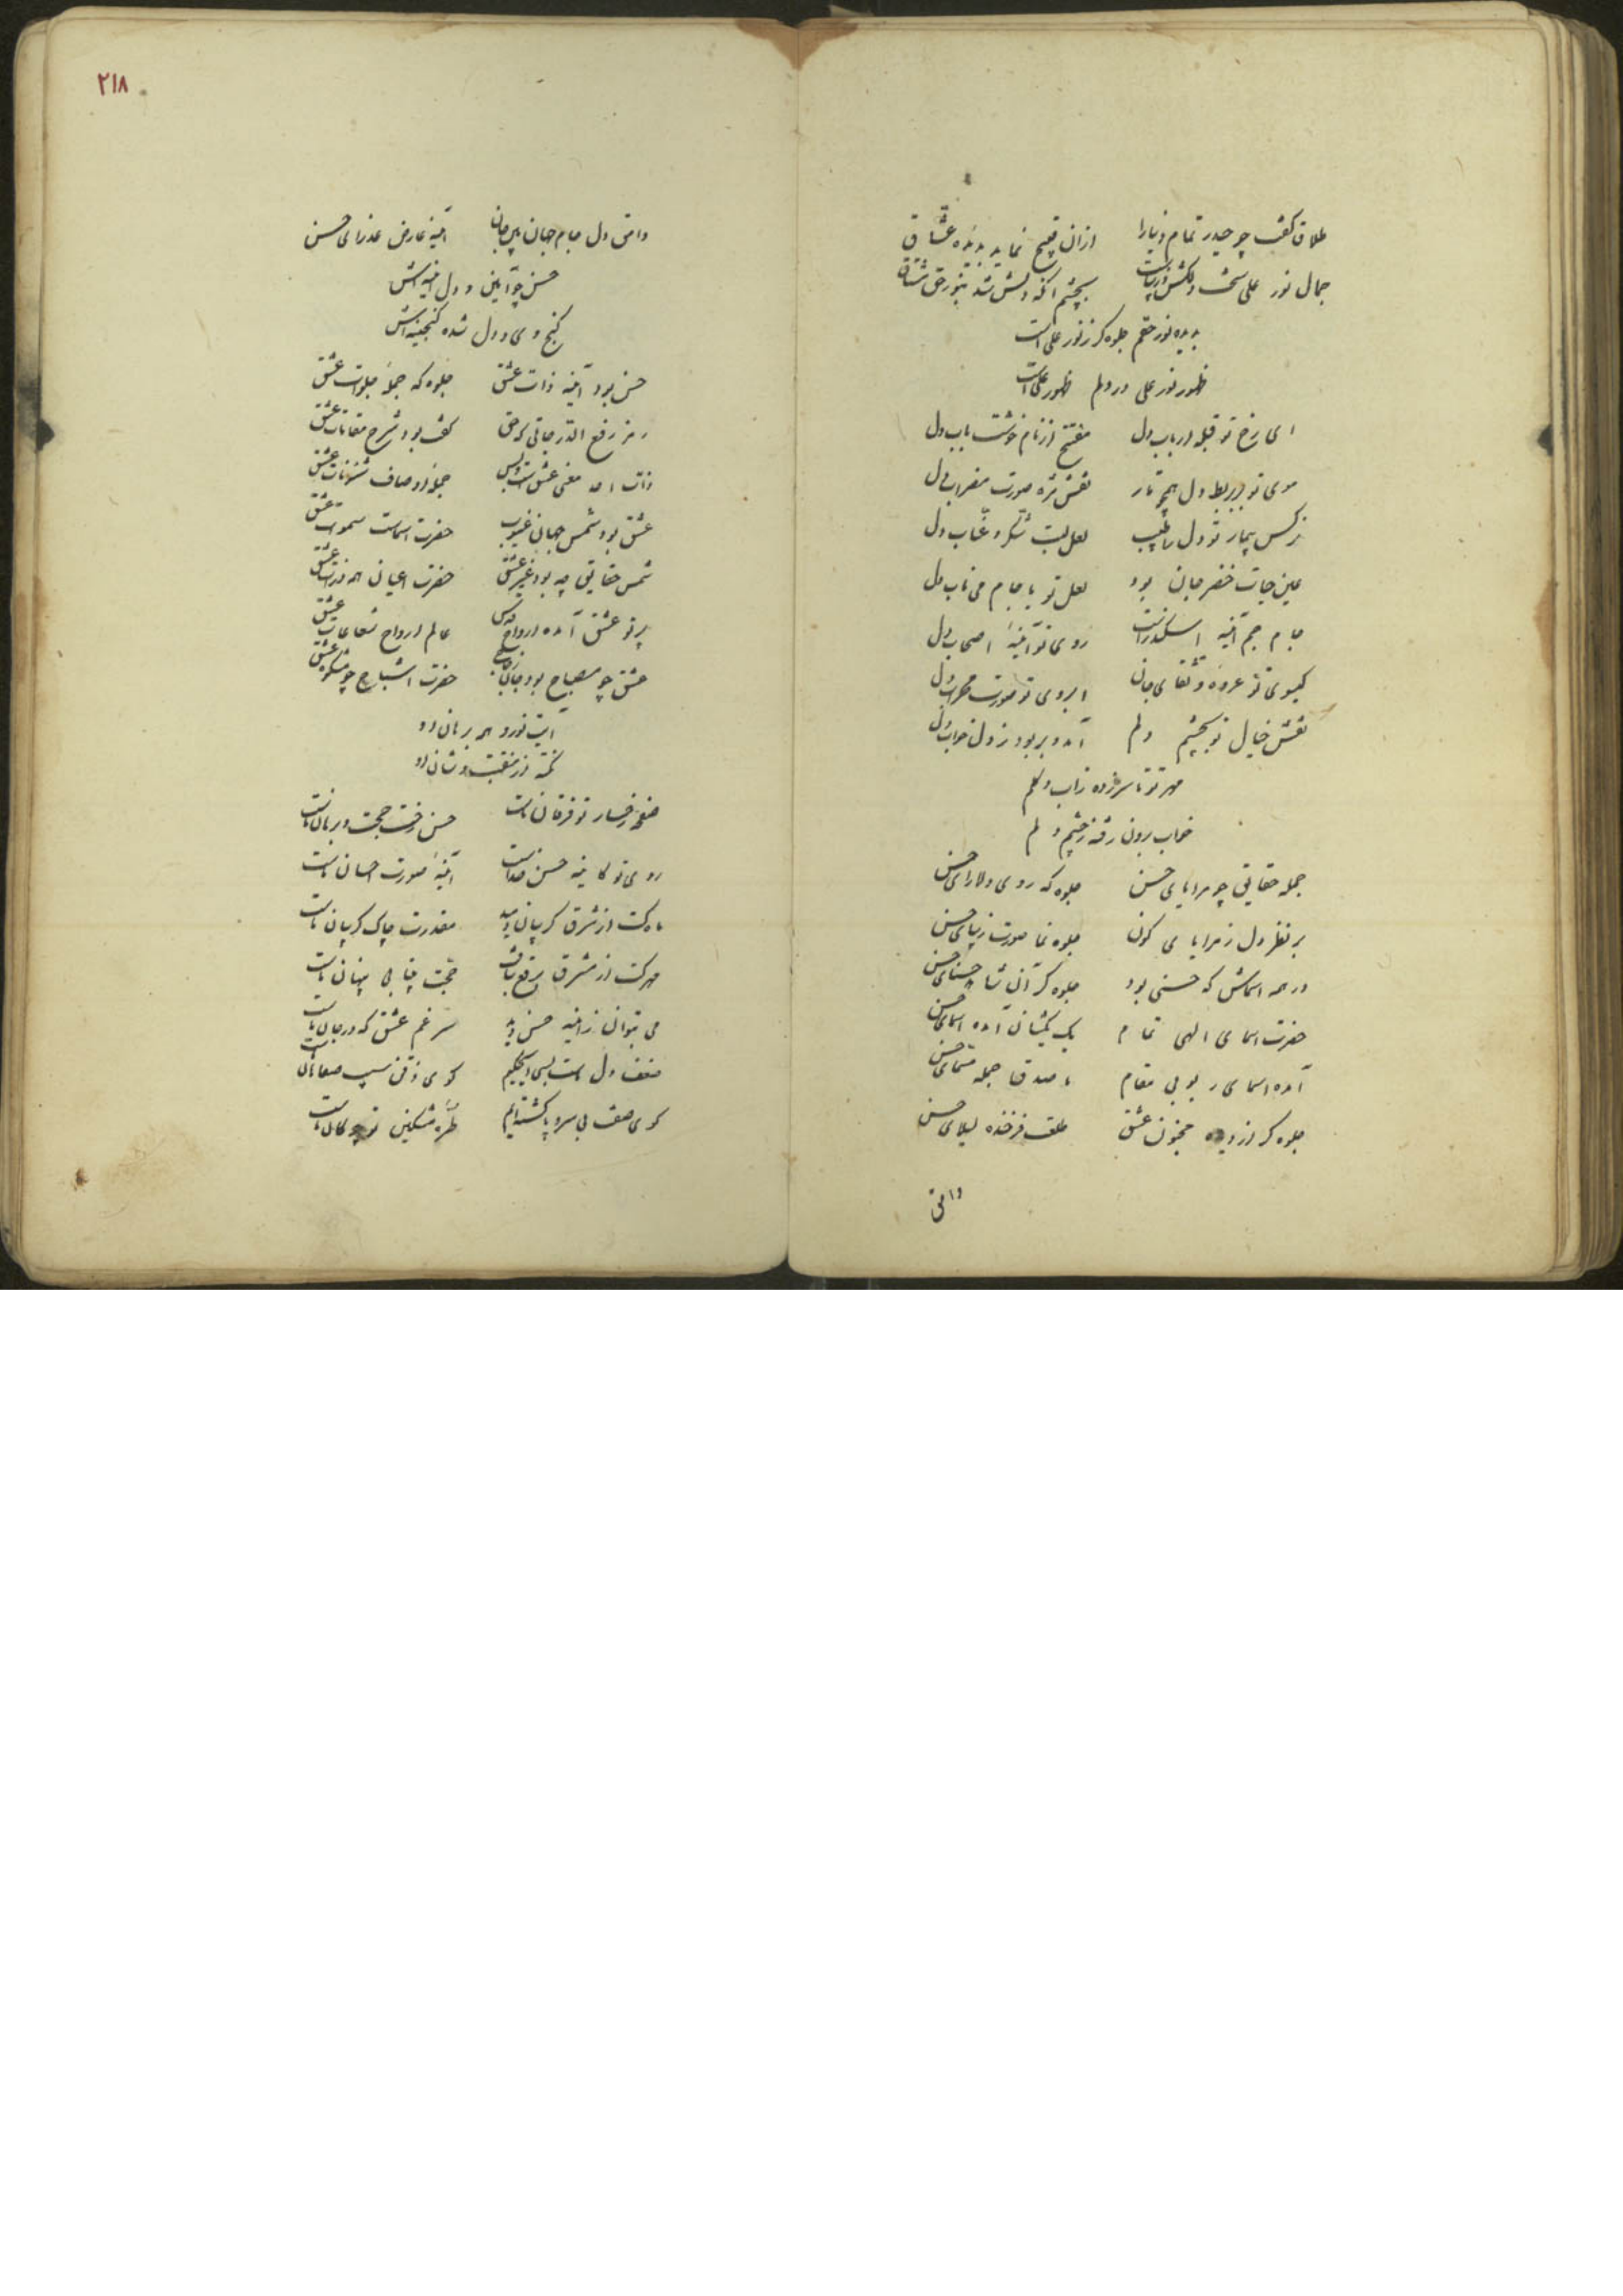 طلاق گفت چو حیدر تمام دنیا را ازان قبیح نماید بدیده عشاق
جمال نور علی سخت دلکش و زیباست بچشم آنکه دلش شد بنور حق مشتاق
بدیده نور حقم جلوه گر ز نور علی است
ظهور نور علی در دلم ظهور علی است
ای رخ تو قبله ارباب دل مفتتح از نام خوشت باب دل
موی تو بربط دل همچو تار نقش مژه صورت مضراب دل
نرگس بیمار تو دل را طبیب لعل لبت شکر و عناب دل
عین حیات خضر جان بود لعل تو یا جام می ناب دل
جام جم آئینه اسکندر است روی تو آئینه اصحاب دل
گیسوی تو عروه وثقای جان ابروی تو صورت محراب دل
نقش خیال تو بچشم دلم آمد و بربود ز دل خواب دل
مهر تو تا سر زده ز آب و گلم
خواب برون رفته ز چشم دلم
جمله حقایق چو مرایای حسن جلوه گه روی دلارای حسن
بر نظر دل ز مرایای کون جلوه نما صورت زیبای حسن
در همه اسماش که حسنی بود جلوه گر آن شاهد حسنای حسن
حضرت اسمای الهی تمام یک بیک نشان آمده اسمای حسن
آمده اسمای ربوبی مقام ما صدق جمله مسمای حسن
جلوه گر از دیده مجنون عشق طلعت فرخنده لیلای حسن
وامق
۲۱۸
وامق دل جام جهان بین جان آینه عارض عذرای حسن
حسن چو آیین و دل آئینه اش
گنج وی و دل شده گنجینه اش
حسن بود آینه ذات عشق جلوه گه جمله جلوات عشق
رمز رفیع الدرجاتی که حق گفت بود شرح مقامات عشق
ذات احد معنی عشق است و بس جمله اوصاف شئونات عشق
عشق بود شمس جهان غیوب حضرت اسماست سموات عشق
شمس حقایق چه بود غیر عشق حضرت اعیان همه ذرات عشق
پرتو عشق آمده ارواح قدس عالم ارواح شعاعات عشق
عشق چو مصباح بود جان زجاج حضرت اشباح چو مشکوة عشق
آیت نور و همه برهان او
نکته از منقبت و شان او
صفحه رخسار تو فرقان ماست حسن رخت حجت و برهان ماست
روی تو کائینه حسن خداست آئینه صورت احسان ماست
ماه کت از شرق گریبان دمید مقدرت چاک گریبان ماست
مهر کت از مشرق برقع بتافت حجت پیدایی پنهان ماست
می بتوان ز آینه حسن دید سر غم عشق که در جان ماست
ضعف دل ماست بسی ای حکیم گوی ذقن سیب صفاهان ماست
گوی صفت بی سر و پا گشته ایم طره مشکین تو چوگان ماست